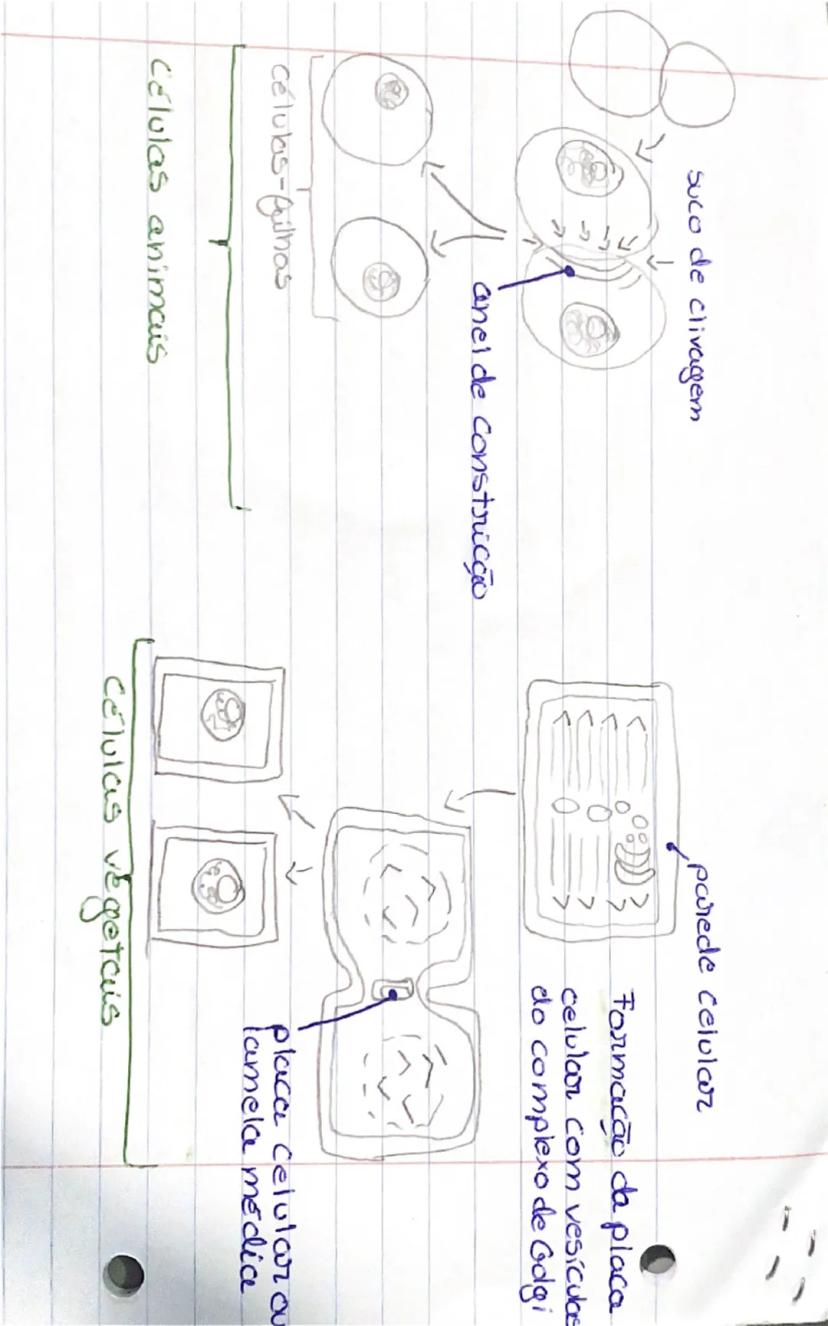 suco de clivagem
anel de constricção
células-filhas
células animais
parede celular
Formação da placa
celular com vesículas
do complexo de Golgi
placa celular ou
lamela média
células vegetais